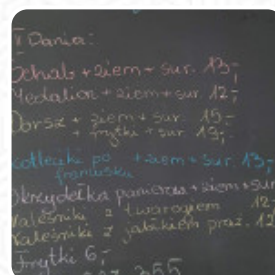 II Dania:
Schab + ziem + sur. 13,-
Medalion + ziem + sur. 12,-
Dorsz + ziem + sur. 15,-
+ frytki + sur 19,-
Kotleciki po + ziem + sur. 13,-
francusku
Skrzydełka panierow. + ziem + sur
Naleśniki z twarogiem 12,-
Naleśniki z jabłkiem praż. 12
Frytki 6,-